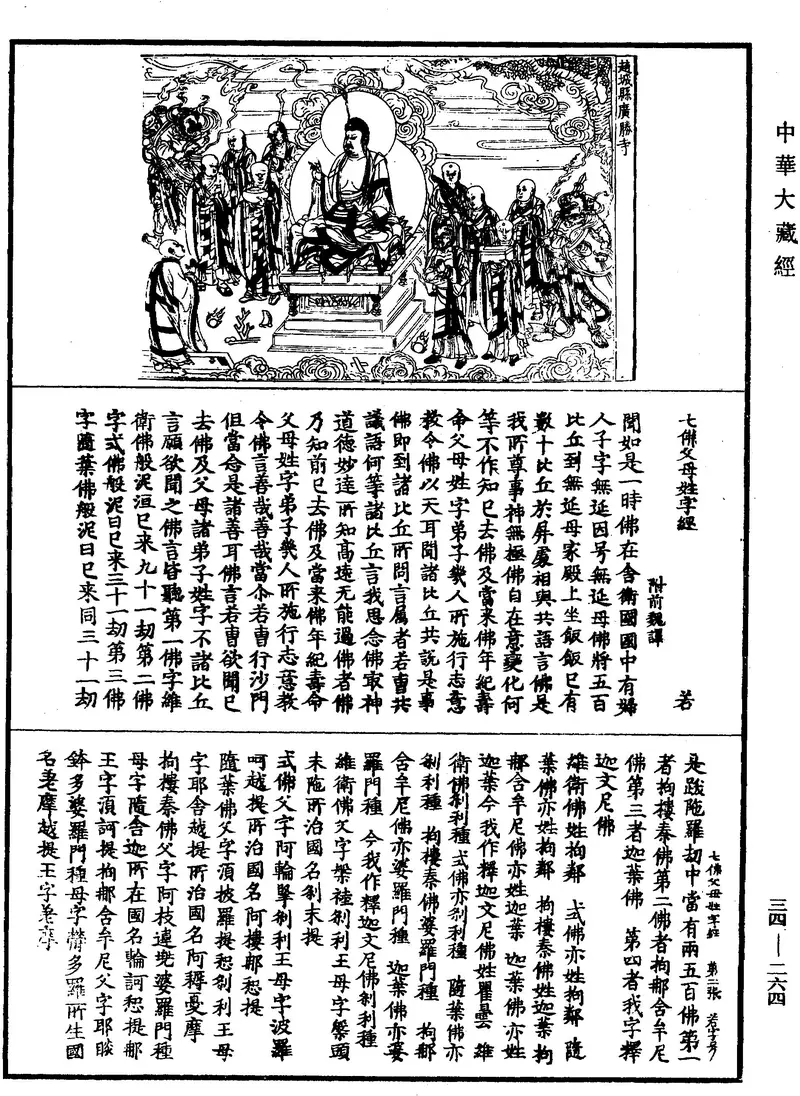 中華大藏經
趙城縣廣勝寺
七佛父母姓字經
附前魏譯
若
聞如是一時佛在舍衛國國中有婦
人子字無延因号無延母佛將五百
比丘到無延母家殿上坐飯飯已有
數十比丘於屏處相與共語言佛是
我所尊事神無極佛自在意變化何
等不作知已去佛及當来佛年紀壽
命父母姓字弟子幾人所施行志意
教令佛以天耳聞諸比丘共說是事
佛即到諸比丘所問言属者若曹共
議語何等諸比丘言我思念佛㝡神
道德妙達所知高遠无能過佛者佛
乃知前已去佛及當来佛年紀壽命
父母姓字弟子幾人所施行志意教
令佛言善哉善哉當尒若曹行沙門
但當念是諸善耳佛言若曹欲聞已
去佛及父母諸弟子姓字不諸比丘
言願欲聞之佛言皆聽第一佛字維
衛佛般泥洹已来九十一劫第二佛
字式佛般泥曰已来三十一劫第三佛
字隨葉佛般泥曰已来同三十一劫
七佛父母姓字經 第二張 若字号
是䟦陁羅劫中當有兩五百佛第一
者拘樓秦佛第二佛者拘那舍牟尼
佛第三者迦葉佛 第四者我字釋
迦文尼佛
維衛佛姓拘鄰 式佛亦姓拘鄰 隨
葉佛亦姓拘鄰 拘樓秦佛姓迦葉拘
那舍牟尼佛亦姓迦葉 迦葉佛亦姓
迦葉今我作釋迦文尼佛姓瞿曇 維
衛佛剎利種式佛亦剎利種 隨葉佛亦
剎利種 拘樓秦佛婆羅門種 拘那
舍牟尼佛亦婆羅門種 迦葉佛亦婆
羅門種 今我作釋迦文尼佛剎利種
維衛佛父字槃裱剎利王母字槃頭
末陁所治國名剎末提
式佛父字阿輪拏剎利王母字波羅
呵越提所治國名阿樓那惒提
隨葉佛父字湏披羅提惒剎利王母
字耶舍越提所治國名阿耨憂摩
拘樓秦佛父字阿枝違兜婆羅門種
母字隨舍迦所在國名輪訶惒提那
王字湏訶提拘那舍牟尼父字耶睒
鉢多婆羅門種母字欝多羅所生國
名差摩越提王字差摩
三四—二六四